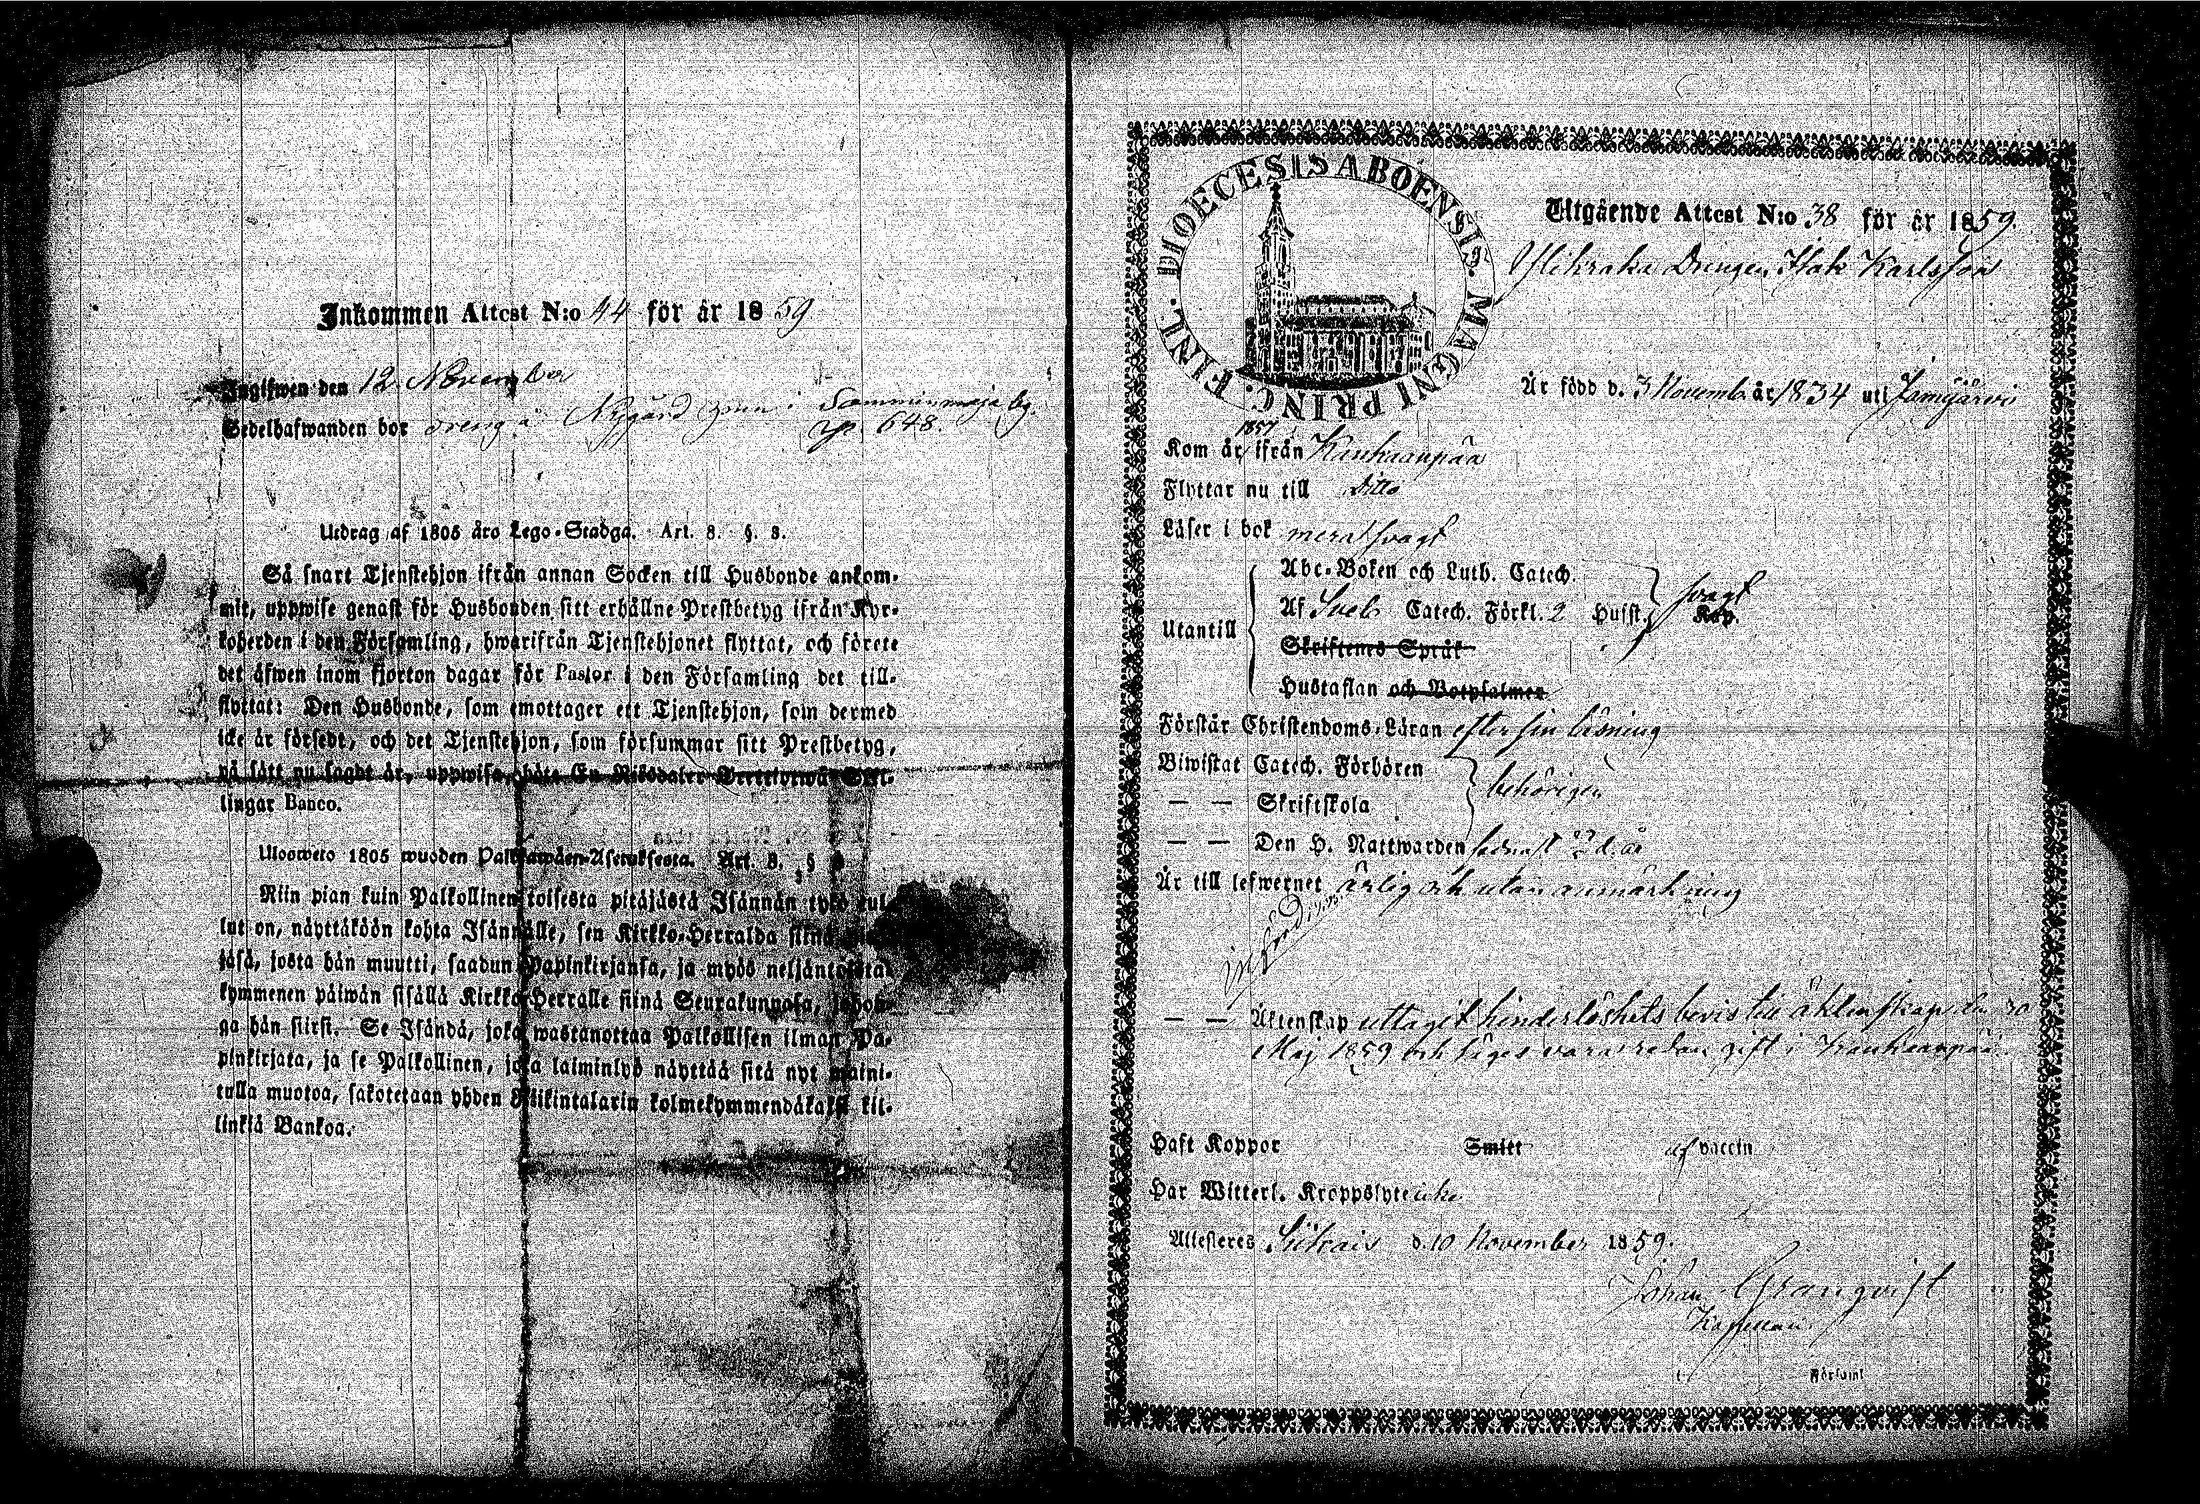 Inkommen Attest N:o 44 för år 1859
Ingifwen den 12 November
Sedelhafwanden bor dreng å Nygård i Samminmaja by.
p. 648.
Utdrag af 1805 års Lego-Stadga. Art. 8. §. 8.
Så snart Tjenstehjon ifrån annan Socken till Husbonde ankom-
mit, uppwise genast för Husbonden sitt erhållne Prestbetyg ifrån Kyr-
koherden i den Församling, hwarifrån Tjenstehjonet flyttat, och förete
det äfwen inom fjorton dagar för Pastor i den Församling det till-
flyttat: Den Husbonde, som emottager ett Tjenstehjon, som dermed
icke är försedt, och det Tjenstehjon, som försummar sitt Prestbetyg,
på sätt nu sagdt är, uppwisa, böte En Riksdaler Trettiotwå Skil-
lingar Banco.
Ulosweto 1805 wuoden Palkkawäen-Asetuksesta. Art. 8. §
Niin pian kuin Palkollinen toisesta pitäjästä Isännän tykö tul-
lut on, näyttäköön kohta Isännälle, sen Kirkko-Herralda siinä
jasa, josta hän muutti, saadun papinkirjansa, ja myös neljäntoista-
kymmenen päiwän sisällä Kirkko-Herralle siinä Seurakunnasa, johon-
ga hän siirsi. Se Isändä, joka wastanottaa Palkollisen ilman Pa-
pinkirjata, ja se Palkollinen, joka laiminlyö näyttää sitä nyt maini-
tulla muotoa, sakotetaan yhden Riikintalarin kolmekymmendäkaksi kil-
linkiä Bankoa.
DIOECESIS ABOENSIS. MAGNI PRINC. FINL.
Utgående Attest N:o 38 för år 1859.
Drengen Isak Karlsson
År född d. 3 Novemb. år 1834 uti Jämijärvi
1857
Kom år ifrån Kankaanpää
Flyttar nu till Ditto
Läser i bok merat svagt
Utantill
Abc-Boken och Luth. Catech.
Af Sveb Catech. Förkl. 2 Husst. Kap.
svagt
Skriftenes Språk
Hustaflan och Botpsalmer
Förstår Christendoms-Läran efter sin läsning
Biwistat Catech. Förhören
— — Skriftskola
behörigen
— — Den H. Nattwarden sednast d. år
Är till lefwernet ärlig och utan anmärkning
— — Äktenskap uttagit hinderlöshets bevis till äktenskap den 30
Maj 1859 och säges vara redan gift i Kankaanpää
Haft Koppor Smitt af vaccin
Har Witterl. Kroppslyte icke
Attesteres Siikais d. 10 November 1859.
Johan Granqvist
Kapellan
Församl